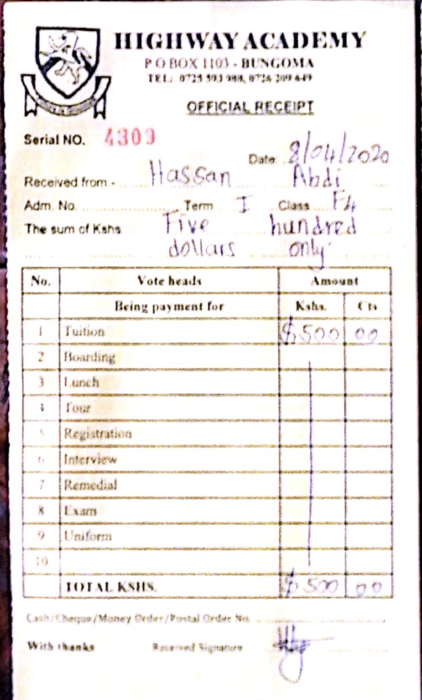 HIGHWAY ACADEMY
P O BOX 1103 - BUNGOMA
TEL: 0725 593 988, 0726 209 649
OFFICIAL RECEIPT
Serial NO. 4309
Date 8/04/2020
Received from - Hassan Abdi
Adm. No. Term I Class F4
The sum of Kshs Five hundred
dollars only
No. Vote heads Amount
Being payment for Kshs. Cts
1 Tuition $500 00
2 Boarding
3 Lunch
4 Tour
5 Registration
6 Interview
7 Remedial
8 Exam
9 Uniform
10
TOTAL KSHS. $500 00
Cash/Cheque/Money Order/Postal Order No.
With thanks Received Signature